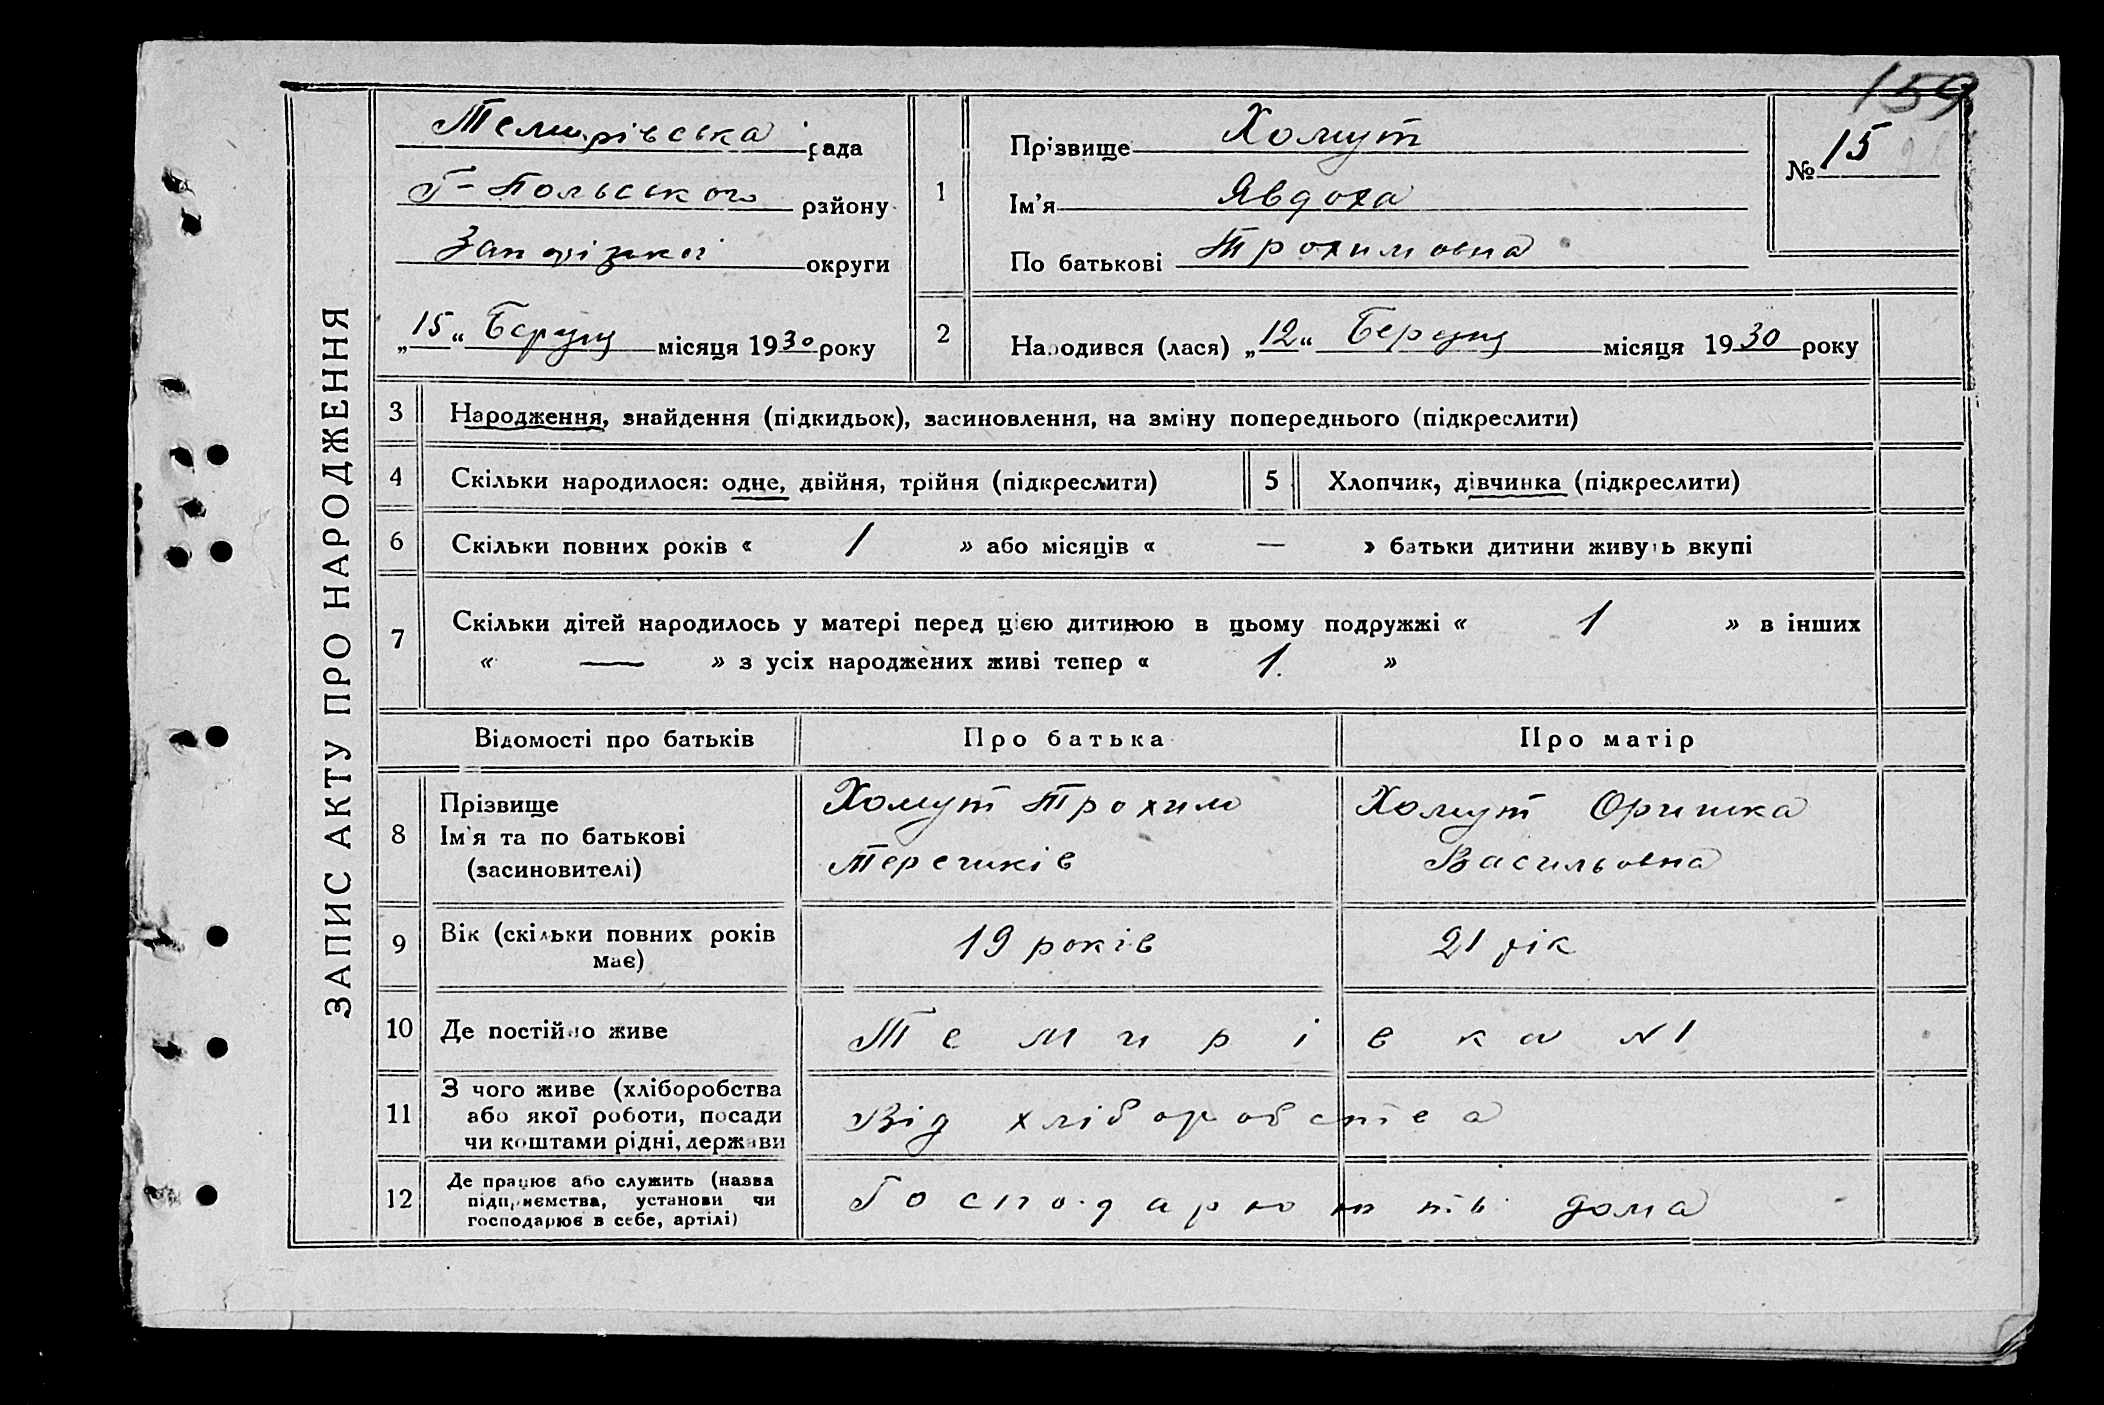 159
ЗАПИС АКТУ ПРО НАРОДЖЕННЯ
Темирівська рада
Г-Польського району
округи
„15“ місяця 1930 року
1
Прізвище Хомут
Ім'я Явдоха
По батькові Трохимовна
№ 15
2
Народився (лася) „12“ місяця 1930 року
3 Народження, знайдення (підкидьок), засиновлення, на зміну попереднього (підкреслити)
4 Скільки народилося: одне, двійня, трійня (підкреслити) 5 Хлопчик, дівчинка (підкреслити)
6 Скільки повних років « 1 » або місяців « — » батьки дитини живуть вкупі
7 Скільки дітей народилось у матері перед цією дитиною в цьому подружжі « 1 » в інших
« — » з усіх народжених живі тепер « 1. »
Відомості про батьків Про батька Про матір
8 Прізвище
Ім'я та по батькові
(засиновителі)
Хомут Трохим
Хомут Оришка
Васильовна
9 Вік (скільки повних років
має)
19 років 21 рік
10 Де постійно живе Темирівка №1
11 З чого живе (хліборобства
або якої роботи, посади
чи коштами рідні, держави
Від хліборобства
12 Де працює або служить (назва
підприємства, установи чи
господарює в себе, артілі)
дома